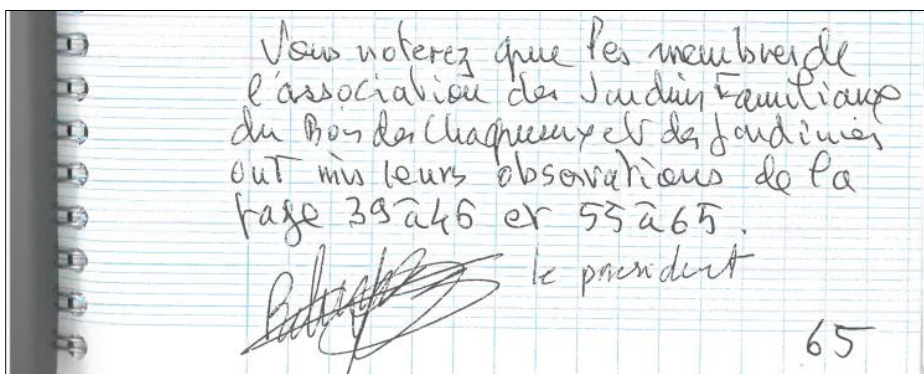 Vous noterez que les membres de
l'association des Jardins Familiaux
du Bois des et des Jardiniers
ont mis leurs observations de la
page 39 à 46 et 55 à 65.
le president
65